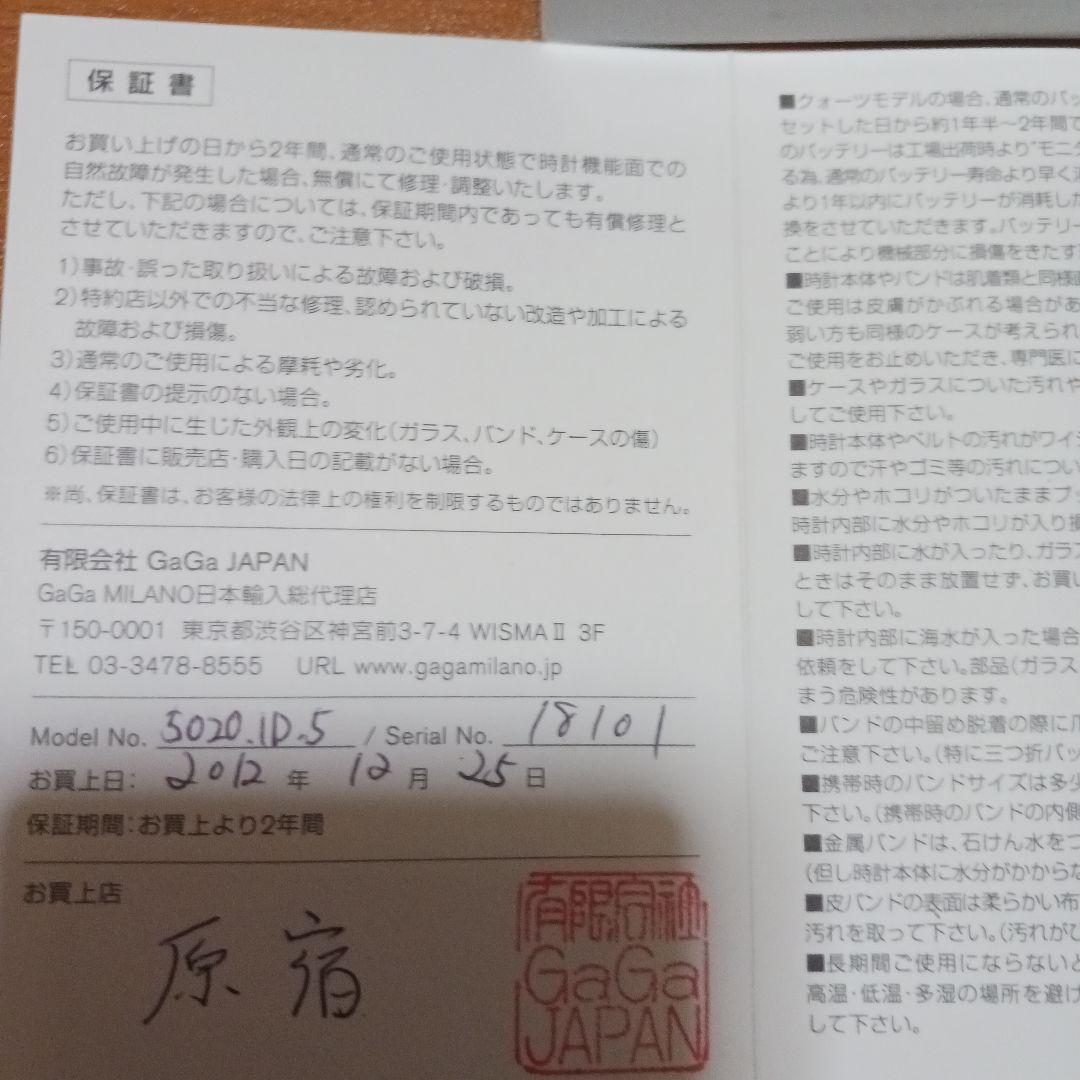 保証書
お買い上げの日から2年間、通常のご使用状態で時計機能面での
自然故障が発生した場合、無償にて修理・調整いたします。
ただし、下記の場合については、保証期間内であっても有償修理と
させていただきますので、ご注意下さい。
1)事故・誤った取り扱いによる故障および破損。
2)特約店以外での不当な修理、認められていない改造や加工による
故障および損傷。
3)通常のご使用による摩耗や劣化。
4)保証書の提示のない場合。
5)ご使用中に生じた外観上の変化(ガラス、バンド、ケースの傷)
6)保証書に販売店・購入日の記載がない場合。
※尚、保証書は、お客様の法律上の権利を制限するものではありません。
有限会社 GaGa JAPAN
GaGa MILANO日本輸入総代理店
〒150-0001 東京都渋谷区神宮前3-7-4 WISMAⅡ 3F
TEL 03-3478-8555 URL www.gagamilano.jp
Model No. 5020.1D.5 / Serial No. 18101
お買上日: 2012 年 12 月 25 日
保証期間:お買上より2年間
お買上店
原宿
有限会社
GaGa
JAPAN
■クォーツモデルの場合、通常のバッ
セットした日から約1年半～2年間で
のバッテリーは工場出荷時より"モニタ
る為、通常のバッテリー寿命より早く
より1年以内にバッテリーが消耗した
換をさせていただきます。バッテリー
ことにより機械部分に損傷をきたす
■時計本体やバンドは肌着類と同様
ご使用は皮膚がかぶれる場合があ
弱い方も同様のケースが考えられ
ご使用をお止めいただき、専門医に
■ケースやガラスについた汚れや
してご使用下さい。
■時計本体やベルトの汚れがワイ
ますので汗やゴミ等の汚れについ
■水分やホコリがついたままプッ
時計内部に水分やホコリが入り損
■時計内部に水が入ったり、ガラス
ときはそのまま放置せず、お買い
して下さい。
■時計内部に海水が入った場合
依頼をして下さい。部品(ガラス
まう危険性があります。
■バンドの中留め脱着の際に爪
ご注意下さい。(特に三つ折バッ
■携帯時のバンドサイズは多少
下さい。(携帯時のバンドの内側
■金属バンドは、石けん水をつ
(但し時計本体に水分がかからな
■皮バンドの表面は柔らかい布
汚れを取って下さい。(汚れがひ
■長期間ご使用にならないと
高温・低温・多湿の場所を避け
して下さい。